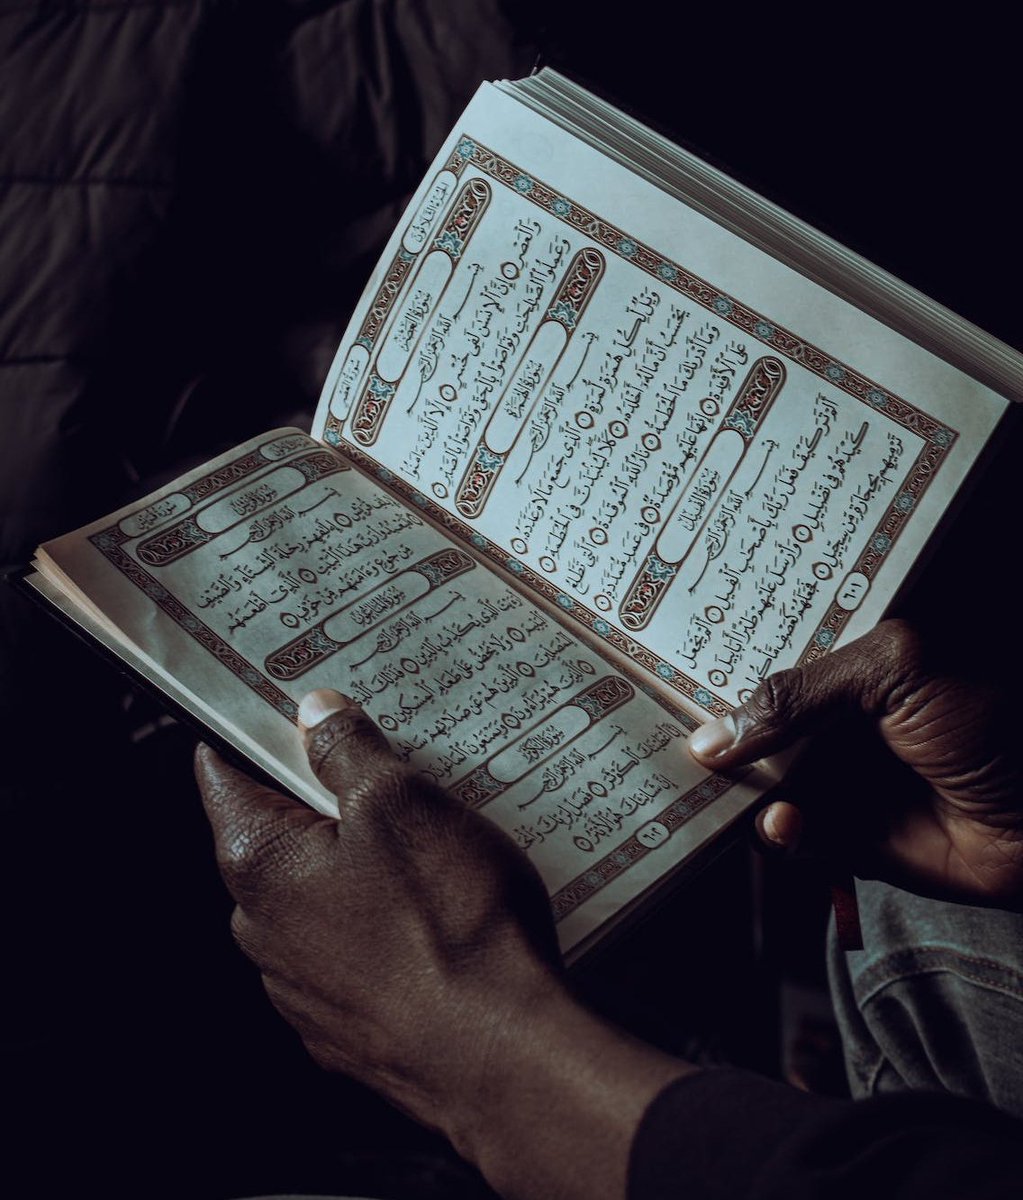 الجزء الثلاثون
سورة العصر
سُورَةُ العَصْرِ
بِسْمِ ٱللَّهِ ٱلرَّحْمَٰنِ ٱلرَّحِيمِ
وَٱلْعَصْرِ ۝ إِنَّ ٱلْإِنسَٰنَ لَفِى خُسْرٍ ۝ إِلَّا ٱلَّذِينَ ءَامَنُوا۟
وَعَمِلُوا۟ ٱلصَّٰلِحَٰتِ وَتَوَاصَوْا۟ بِٱلْحَقِّ وَتَوَاصَوْا۟ بِٱلصَّبْرِ ۝
سُورَةُ الهُمَزَةِ
بِسْمِ ٱللَّهِ ٱلرَّحْمَٰنِ ٱلرَّحِيمِ
وَيْلٌ لِّكُلِّ هُمَزَةٍ لُّمَزَةٍ ۝ ٱلَّذِى جَمَعَ مَالًا وَعَدَّدَهُۥ ۝
يَحْسَبُ أَنَّ مَالَهُۥٓ أَخْلَدَهُۥ ۝ كَلَّا ۖ لَيُنۢبَذَنَّ فِى ٱلْحُطَمَةِ ۝
وَمَآ أَدْرَىٰكَ مَا ٱلْحُطَمَةُ ۝ نَارُ ٱللَّهِ ٱلْمُوقَدَةُ ۝ ٱلَّتِى تَطَّلِعُ
عَلَى ٱلْأَفْـِٔدَةِ ۝ إِنَّهَا عَلَيْهِم مُّؤْصَدَةٌ ۝ فِى عَمَدٍ مُّمَدَّدَةٍ ۝
سُورَةُ الفِيلِ
بِسْمِ ٱللَّهِ ٱلرَّحْمَٰنِ ٱلرَّحِيمِ
أَلَمْ تَرَ كَيْفَ فَعَلَ رَبُّكَ بِأَصْحَٰبِ ٱلْفِيلِ ۝ أَلَمْ يَجْعَلْ
كَيْدَهُمْ فِى تَضْلِيلٍ ۝ وَأَرْسَلَ عَلَيْهِمْ طَيْرًا أَبَابِيلَ ۝
تَرْمِيهِم بِحِجَارَةٍ مِّن سِجِّيلٍ ۝ فَجَعَلَهُمْ كَعَصْفٍ مَّأْكُولٍۭ ۝
٦٠١
سورة قريش
سُورَةُ قُرَيْشٍ
بِسْمِ ٱللَّهِ ٱلرَّحْمَٰنِ ٱلرَّحِيمِ
قُرَيْشٍ ۝ إِۦلَٰفِهِمْ رِحْلَةَ ٱلشِّتَآءِ وَٱلصَّيْفِ
فَلْيَعْبُدُوا۟ رَبَّ هَٰذَا ٱلْبَيْتِ ۝ ٱلَّذِىٓ أَطْعَمَهُم
مِّن جُوعٍ وَءَامَنَهُم مِّنْ خَوْفٍۭ ۝
سُورَةُ المَاعُونِ
بِسْمِ ٱللَّهِ ٱلرَّحْمَٰنِ ٱلرَّحِيمِ
أَرَءَيْتَ ٱلَّذِى يُكَذِّبُ بِٱلدِّينِ ۝ فَذَٰلِكَ ٱلَّذِى
ٱلْيَتِيمَ ۝ وَلَا يَحُضُّ عَلَىٰ طَعَامِ ٱلْمِسْكِينِ ۝
لِّلْمُصَلِّينَ ۝ ٱلَّذِينَ هُمْ عَن صَلَاتِهِمْ سَاهُونَ
ٱلَّذِينَ هُمْ يُرَآءُونَ ۝ وَيَمْنَعُونَ ٱلْمَاعُونَ ۝
سُورَةُ الكَوْثَرِ
بِسْمِ ٱللَّهِ ٱلرَّحْمَٰنِ ٱلرَّحِيمِ
إِنَّآ أَعْطَيْنَٰكَ ٱلْكَوْثَرَ ۝ فَصَلِّ لِرَبِّكَ وَٱنْحَرْ
إِنَّ شَانِئَكَ هُوَ ٱلْأَبْتَرُ ۝
٦٠٢